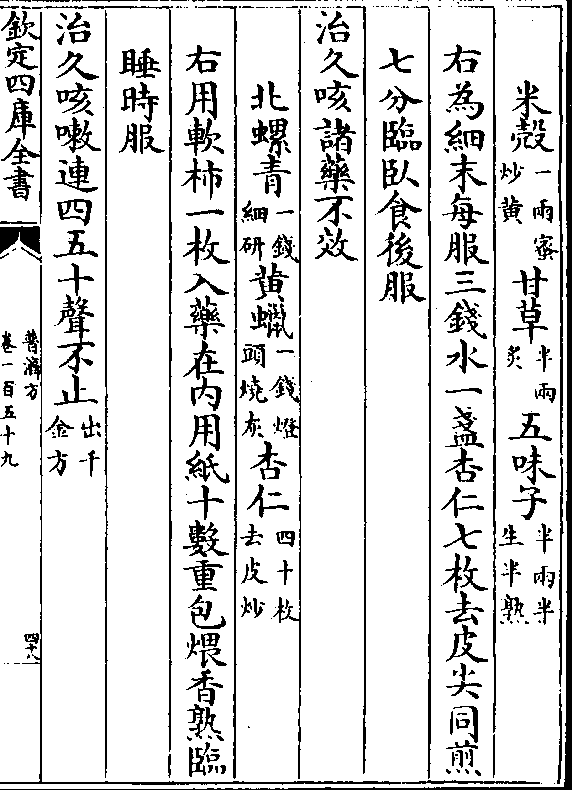 米殻一兩蜜炒黄甘草半兩炙五味子半兩半生半熟
右為細末每服三錢水一盞杏仁七枚去皮尖同煎
七分臨臥食後服
治久咳諸藥不效
北螺青一錢細研黄蠟一錢燈頭燒灰杏仁四十枚去皮炒
右用軟柿一枚入藥在内用紙十數重包煨香熟臨
睡時服
治久咳嗽連四五十聲不止出千金方
欽定四庫全書
普濟方
卷一百五十九
四十八